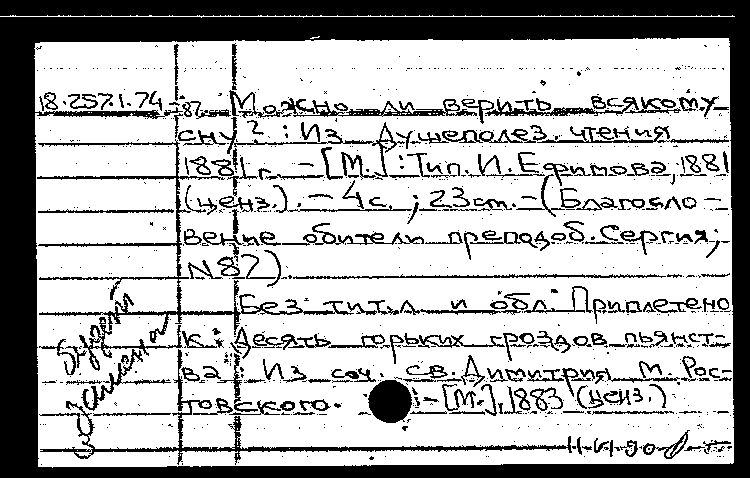 18.257.1.74-87. Можно ли верить всякому
сну? : Из Душеполез. чтения
1881 г. – [М.] : Тип. И. Ефимова, 1881
(ценз.). – 4 с. ; 23 см. – (Благосло-
вение обители преподоб. Сергия;
N 87)
Без тит.л и обл. Приплетено
к: Десять горьких гроздов пьянст-
ва. Из соч. св. Димитрия М. Рос-
товского. – [М.], 1883 (ценз.)